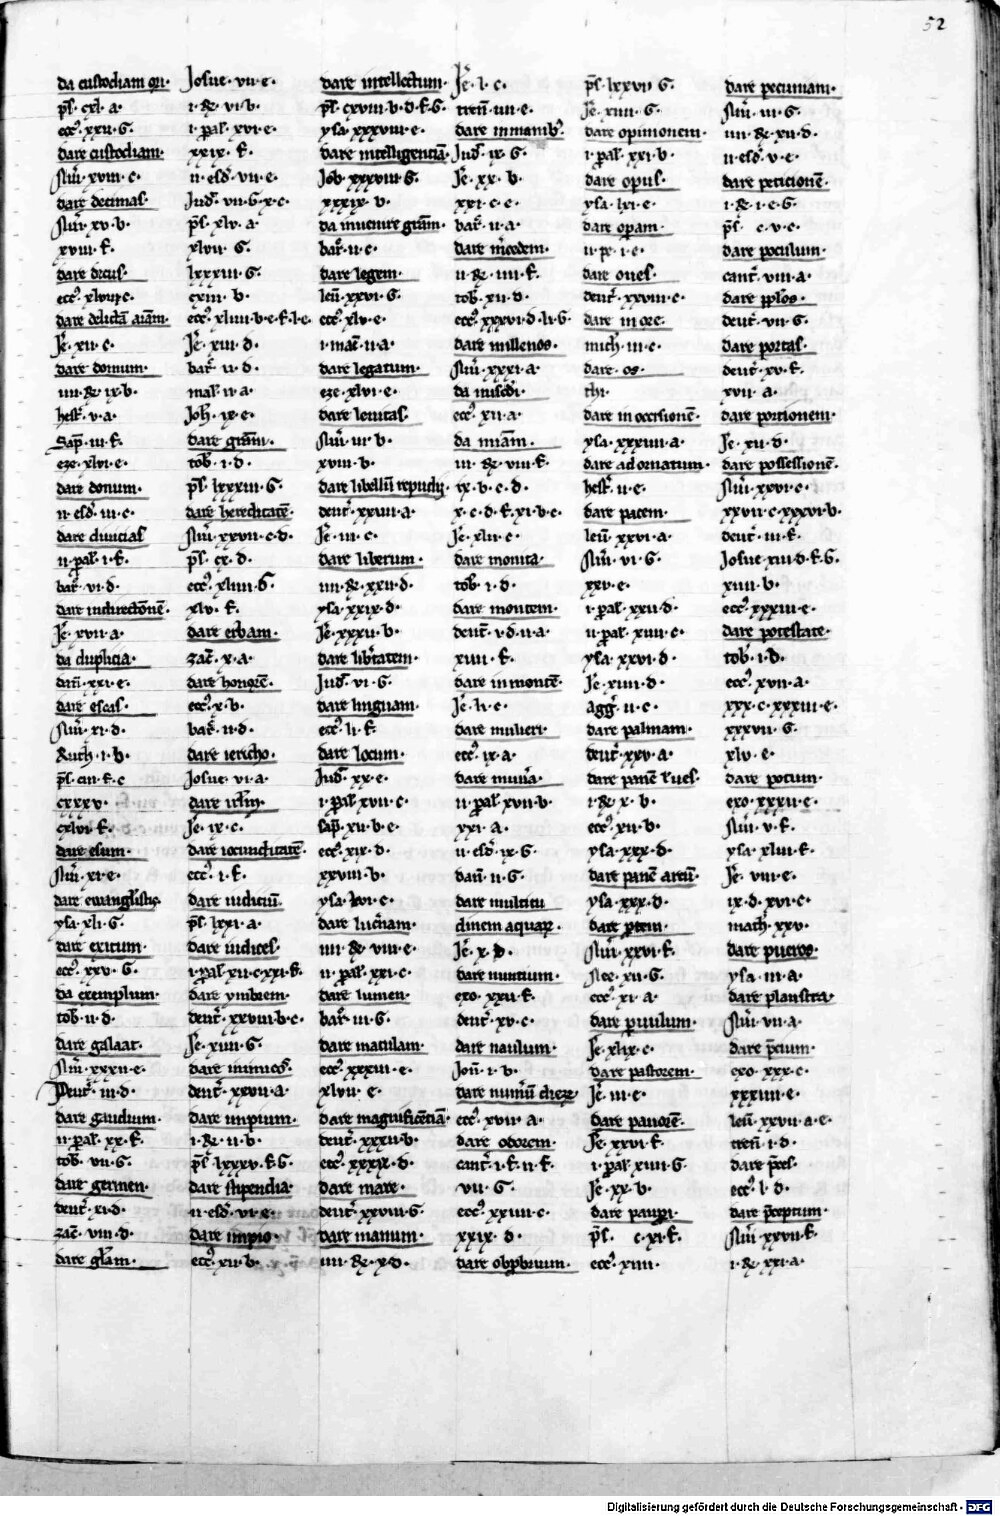 52
da custodiam ori·
p̄s· cxl· a·
ecc̉· xxii· G·
dare custodiam·
Nūi· xviii· c·
dare decimas·
Nūi· xv· b·
xviii· f·
dare decus·
ecc̉·
dare delictā aīam·
Je᷑· xii· c·
dare domum·
iiii· R̄· ix· b·
hest᷑· v· a·
Sap̄· iii· f·
eze· xlvi· e·
dare donum·
ii· esd᷑· iii· c·
dare divicias
ii· p̄al᷑· i· f·
bar᷑· vi· d·
Je᷑· xvii· a·
da duplicia·
dañ· xxi· e·
dare escas·
Nūi· xi· d·
Ruth· i· b·
p̄s· ciii· f· c
cxxxv·
cxlvi· f·
dare esum·
Nūi· xi· e·
ysa· xli· G·
dare exitum·
ecc̉· xxv· G·
da exemplum·
tob᷑· ii· d·
dare galaat·
Nūi· xxxii· e·
Deut᷑· iii· d·
dare gaudium·
ii· p̄al᷑· xx· f·
tob᷑· vii· G·
dare germen·
deut᷑· xi· d·
zac̄· viii· d·
dare gl̄am·
Josue· vii· e·
i· R̄· vi· b·
i· p̄al᷑· xvi· e·
xxix· f·
ii· esd᷑· vii· e·
Jud᷑· vii· G· x· c·
p̄s· xlv· a·
xlvii· G·
lxxxiii· G·
cxiii· b·
ecc̉· xliiii· b· e· f· l· e·
Je᷑· xiii· d·
bar᷑· ii· d·
mal᷑· ii· a·
Joh᷑· ix· e·
dare grām·
tob᷑· i· d·
p̄s· lxxxiii· G·
dare hereditatē·
Nūi· xxvii· c· d·
p̄s· cx· d·
ecc̉· xliiii· G·
xlv· f·
dare erbam·
zac̄· x· a·
dare honorē·
ecc̉· x· b·
bar᷑· ii· d·
dare iericho·
Josue· vi· a·
dare irl̄m·
Je᷑· ix· c·
dare iocunditatē·
ecc̉· i· f·
dare iudiciū·
p̄s· lxxi· a·
dare iudices·
i· p̄al᷑· xii· c· xxi· f·
dare ymbrem·
deut᷑· xxviii· b· c·
Je᷑· xiiii· G·
dare inimicos̉·
deut᷑· xxvii· a·
dare impium·
i· R̄· ii· b·
p̄s· lxxxv· f· G·
dare stipendia·
ii· esd᷑· vi· e·
dare impio·
ecc̉· xii· b·
dare intellectum·
p̄s· cxviii· b· d· f· G·
ysa· xxxviii· e·
dare intelligenciā·
Job· xxxviii· G·
xxxix· b·
bar᷑· ii· c·
dare legem·
leū· xxvi· G·
ecc̉· xlv· e·
i· mac̄· ii· a·
dare legatum·
eze· xlvi· e·
dare levitas·
Nūi· iii· b·
xviii· b·
dare libellū repudij·
deut᷑· xxiiii· a·
Je᷑· iii· c·
dare liberum·
iiii· R̄· xxii· d·
ysa· xxix· d·
Je᷑· xxxii· b·
dare lib᷑tatem·
Jud᷑· vi· G·
dare linguam·
ecc̉· li· f·
dare locum·
Jud᷑· xx· e·
i· p̄al᷑· xvii· c·
sap̄· xii· b· e·
ecc̉· xix· d·
xxviii· b·
ysa· lvi· e·
dare luc̄nam·
iiii· R̄· viii· e·
ii· p̄al᷑· xxi· c·
dare lumen·
bar᷑· iii· G·
dare maculam·
ecc̉· xxxiii· e·
xlvii· e·
dare magnificētiā·
deut᷑· xxxii· b·
ecc̉· xxxix· d·
dare mare·
deut᷑· xxviii· G·
dare manum·
iiii· R̄· x· d·
Je᷑· l· c·
tren̄· iiii· e·
dare in manib̉·
Jud᷑· ix· G·
Je᷑· xx· b·
xxi· c· e·
bar᷑· ii· a·
ii· R̄· iiii· f·
tob᷑· xii· d·
ecc̉· xxxvi· d· li· G·
dare millenos·
Nūi· xxxi· a·
ecc̉· xii· a·
da miām·
iii· R̄· viii· f·
ix· b· c· d·
x· c· d· f· xi· b· c·
Je᷑· xlii· c·
dare monita·
tob᷑· i· d·
dare montem·
deut᷑· i· d· ii· a·
xiiii· f·
dare in montē·
Je᷑· li· e·
dare mulieri·
ecc̉· ix· a·
dare mun̉a·
ii· p̄al᷑· xvii· b·
xxi· a·
ii· esd᷑· ix· G·
dañ· ii· G·
dare multitu
dinem aquar̨·
Je᷑· x· b·
dare nuntium·
exo· xxii· f·
deut᷑· xv· c·
dare naulum·
Jon̄· i· b·
ecc̉· xvii· a·
dare odorem·
cant᷑· i· f· ii· f·
vii· G·
ecc̉· xxiiii· c·
xxix· d·
dare obp̄brium·
p̄s· lxxvii· G·
Je᷑· xiiii· G·
dare opinionem·
i· p̄al᷑· xxi· b·
dare opus·
ysa· lxi· e·
dare opam·
ii· pe· i· e·
dare oues·
deut᷑· xxviii· c·
dare in ore·
mich᷑· iii· c·
dare· os·
thr·
dare in occisionē·
ysa· xxxiiii· a·
dare ad ornatum·
hest᷑· ii· e·
dare pacem·
leū· xxvi· a·
Nūi· vi· G·
xxv· e·
i· p̄al᷑· xxii· d·
ii· p̄al᷑· xiiii· c·
ysa· xxvi· d·
Je᷑· xiiii· d·
agg̉· ii· c·
dare palmam·
deut᷑· xxv· a·
i· R̄· x· b·
ecc̉· xii· b·
ysa· xxx· d·
dare panē artū·
ysa· xxx· d·
dare p̄tem·
Nūi· xxvi· f·
Nee· xii· G·
ecc̉· xi· a·
dare p̄uulum·
Je᷑· xlix· c·
dare pastorem·
Je᷑· iii· e·
dare pauorē·
Je᷑· xxvi· f·
i· p̄al᷑· xiiii· G·
Je᷑· xx· b·
dare paup̄i·
p̄s· c· xi· f·
ecc̉· xiiii·
dare pecuniam·
Nūi· iii· G·
iiii· R̄· xii· d·
ii· esd᷑· v· e·
dare peticionē·
i· R̄· i· e· G·
p̄s· c· v· c·
dare poculum·
cant᷑· viii· a·
dare pp̄los·
deut᷑· vii· G·
dare portas·
deut᷑· xv· f·
xvii· a·
dare portionem·
Je᷑· xii· d·
dare possessionē·
Nūi· xxvi· c·
xxvii· c· xxxvi· b·
deut᷑· iii· f·
Josue· xiii· d· f· G·
xiiii· b·
ecc̉· xxxiii· e·
dare potestate·
tob᷑· i· d·
ecc̉· xvii· a·
xxx· c· xxxiii· e·
xxxvii· G·
xlv· e·
dare potum·
exo· xxxii· e·
Nūi· v· f·
ysa· xliii· f·
Je᷑· viii· e·
ix· d· xvi· c·
math᷑· xxv·
dare pueros·
ysa· iii· a·
dare plaustra·
Nūi· vii· a·
dare p̄cium·
exo· xxx· c·
xxxiiii· e·
leū· xxvii· a· e·
tren̄· i· d·
dare p̄ces·
ecc̉· l· d·
dare p̄ceptum·
Nūi· xxvii· f·
i· R̄· xxi· a·
Digitalisierung gefördert durch die Deutsche Forschungsgemeinschaft · DFG